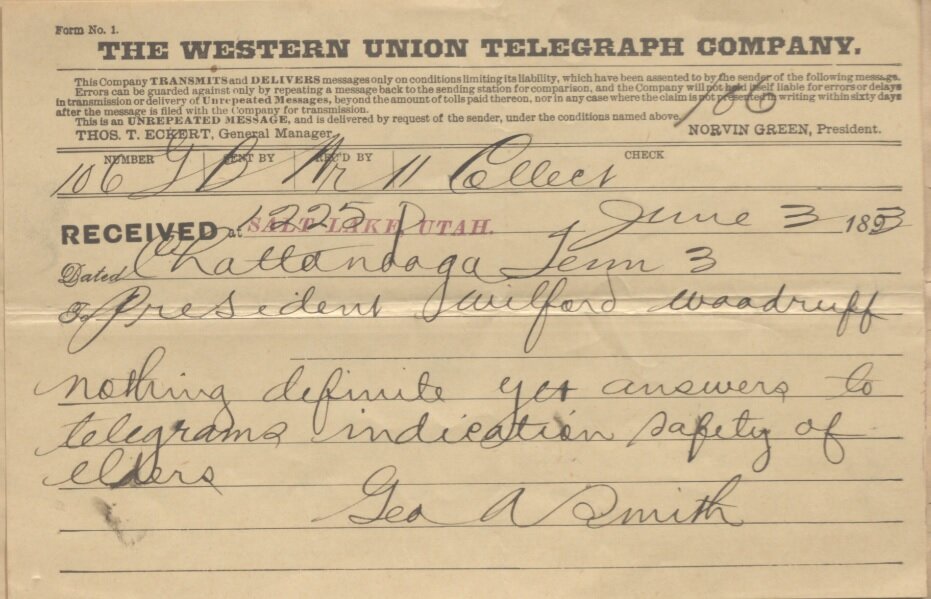 Form No. 1.
THE WESTERN UNION TELEGRAPH COMPANY.
This Company TRANSMITS and DELIVERS messages only on conditions limiting its liability, which have been assented to by the sender of the following message.
Errors can be guarded against only by repeating a message back to the sending station for comparison, and the Company will not hold itself liable for errors or delays
in transmission or delivery of Unrepeated Messages, beyond the amount of tolls paid thereon, nor in any case where the claim is not presented in writing within sixty days
after the message is filed with the Company for transmission.
This is an UNREPEATED MESSAGE, and is delivered by request of the sender, under the conditions named above.
THOS. T. ECKERT, General Manager. NORVIN GREEN, President.
NUMBER SENT BY REC'D BY CHECK
106 11 Collect
RECEIVED at SALT LAKE, UTAH. 1225 P June 3 1893
Dated Chattanooga Tenn 3
To President Wilford Woodruff
nothing definite yet answers to
telegrams indication safety of
elders
Geo A Smith